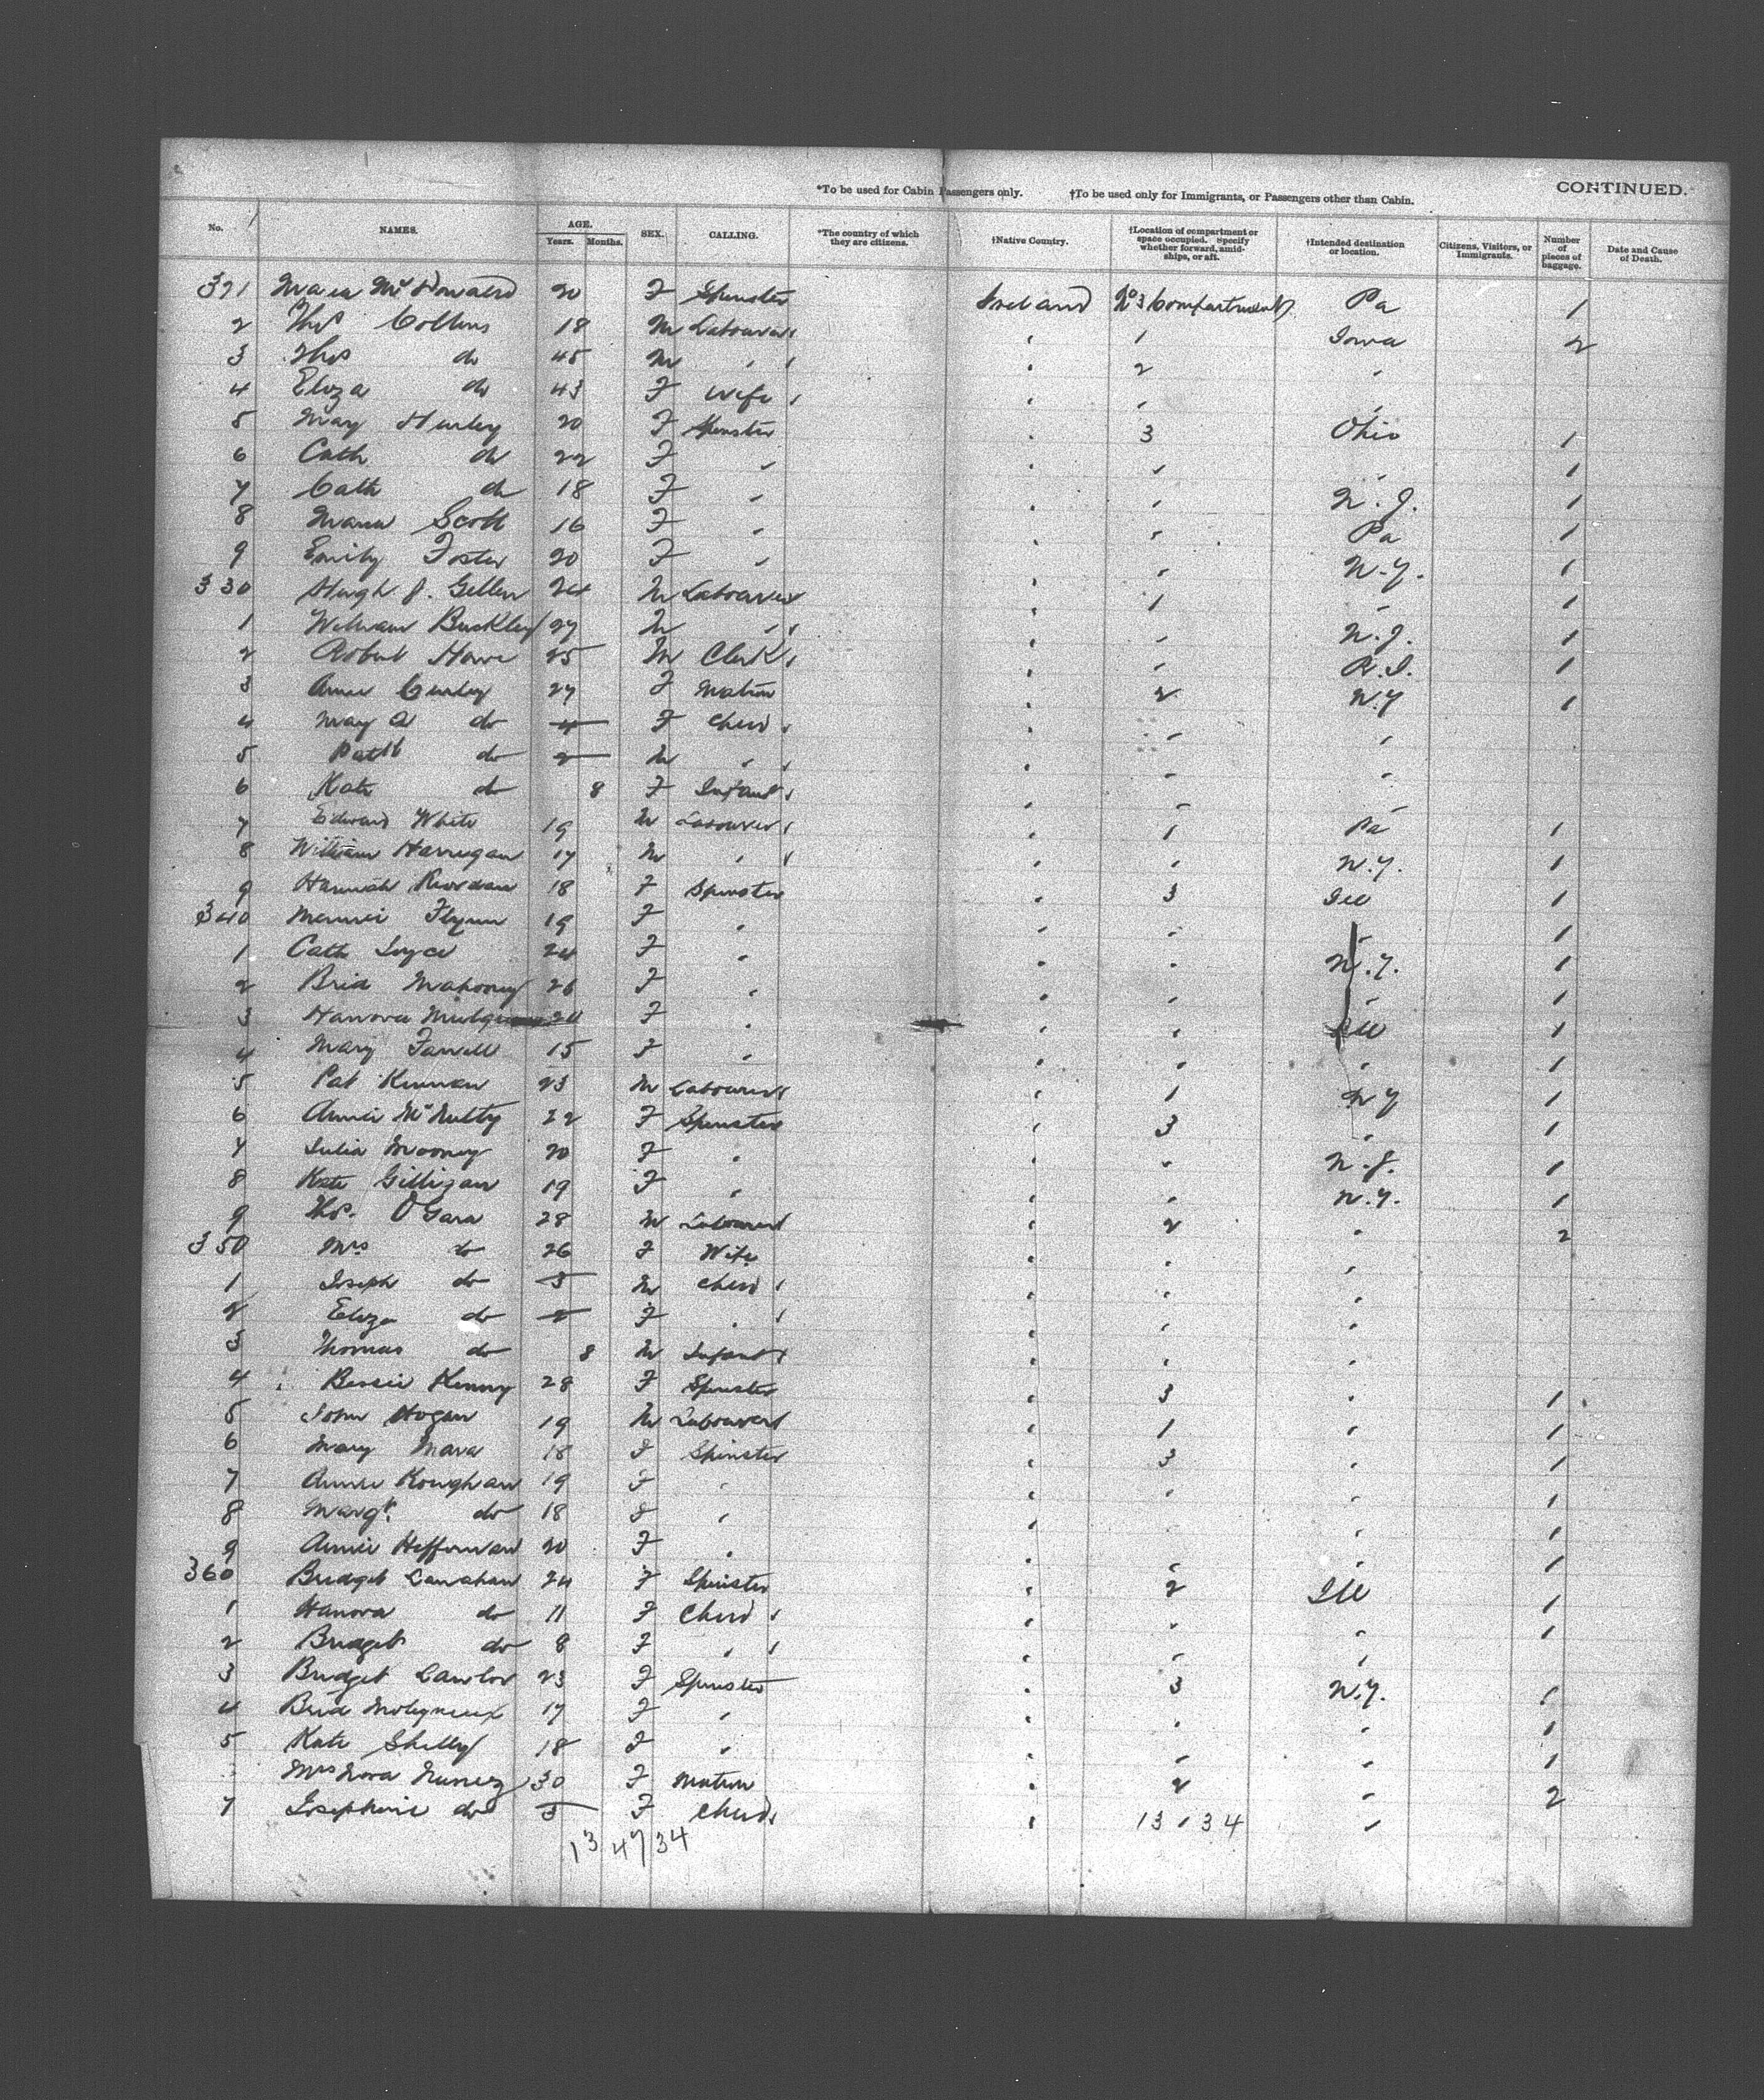 CONTINUED.
*To be used for Cabin Passengers only. †To be used only for Immigrants, or Passengers other than Cabin.
No. NAMES. AGE. Years. Months. SEX. CALLING. *The country of which they are citizens. †Native Country. †Location of compartment or space occupied. Specify whether forward, amidships, or aft. †Intended destination or location. Citizens, Visitors, or Immigrants. Number of pieces of baggage. Date and Cause of Death.
321 Maria McDonald 20 F Spinster Ireland No 3 Compartment Pa 1
2 Thos Collins 18 M Labourer 1 Iowa 2
3 Thos do 45 M " " 2 "
4 Eliza do 43 F Wife " " "
5 Mary Hurley 20 F Spinster " 3 Ohio 1
6 Cath do 22 F " " " " 1
7 Cath do 18 F " " " N.J. 1
8 Maria Scott 16 F " " " Pa 1
9 Emily Foster 20 F " " " N.Y. 1
330 Hugh J. Gillen 24 M Labourer " 1 " 1
1 William Buckley 27 M " " " N.J. 1
2 Robert Howe 25 M Clerk " " R.I. 1
3 Annie Curley 27 F Matron " 2 N.Y 1
4 Mary A do 4 F Child " " "
5 Patk do 2 M " " " "
6 Kate do 8 F Infant " " "
7 Edward White 19 M Labourer " 1 Pa 1
8 William Harrigan 17 M " " " N.Y. 1
9 Hannah Riordan 18 F Spinster " 3 Ill 1
340 Minnie Flynn 19 F " " " " 1
1 Cath Joyce 24 F " " " N.Y. 1
2 Brid Mahoney 26 F " " " " 1
3 Hanora 24 F " " " Ill 1
4 Mary Farrell 15 F " " " " 1
5 Pat Kinnan 23 M Labourer " 1 N Y 1
6 Annie McNulty 22 F Spinster " 3 " 1
7 Julia Mooney 20 F " " " N.J. 1
8 Kate Gilligan 19 F " " " N.Y. 1
9 Thos. O'Gara 28 M Labourer " 2 " 2
350 Mrs do 26 F Wife " " "
1 Joseph do 3 M Child " " "
2 Eliza do 2 F " " " "
3 Thomas do 8 M Infant " " "
4 Bessie Kenny 28 F Spinster " 3 " 1
5 John Hogan 19 M Labourer " 1 " 1
6 Mary Mara 18 F Spinster " 3 " 1
7 Annie Koughan 19 F " " " " 1
8 Margt. do 18 F " " " " 1
9 Annie Heffernan 20 F " " " " 1
360 Bridget Lanahan 24 F Spinster " 2 Ill 1
1 Hanora do 11 F Child " " " 1
2 Bridget do 8 F " " " "
3 Bridget Lawlor 23 F Spinster " 3 N.Y. 1
4 Brid Molyneux 17 F " " " " 1
5 Kate Shelly 18 F " " " " 1
Mrs Nora 30 F Matron " 2 " 2
7 Josephine do 3 F Child " "
13 1 34
13 47 34